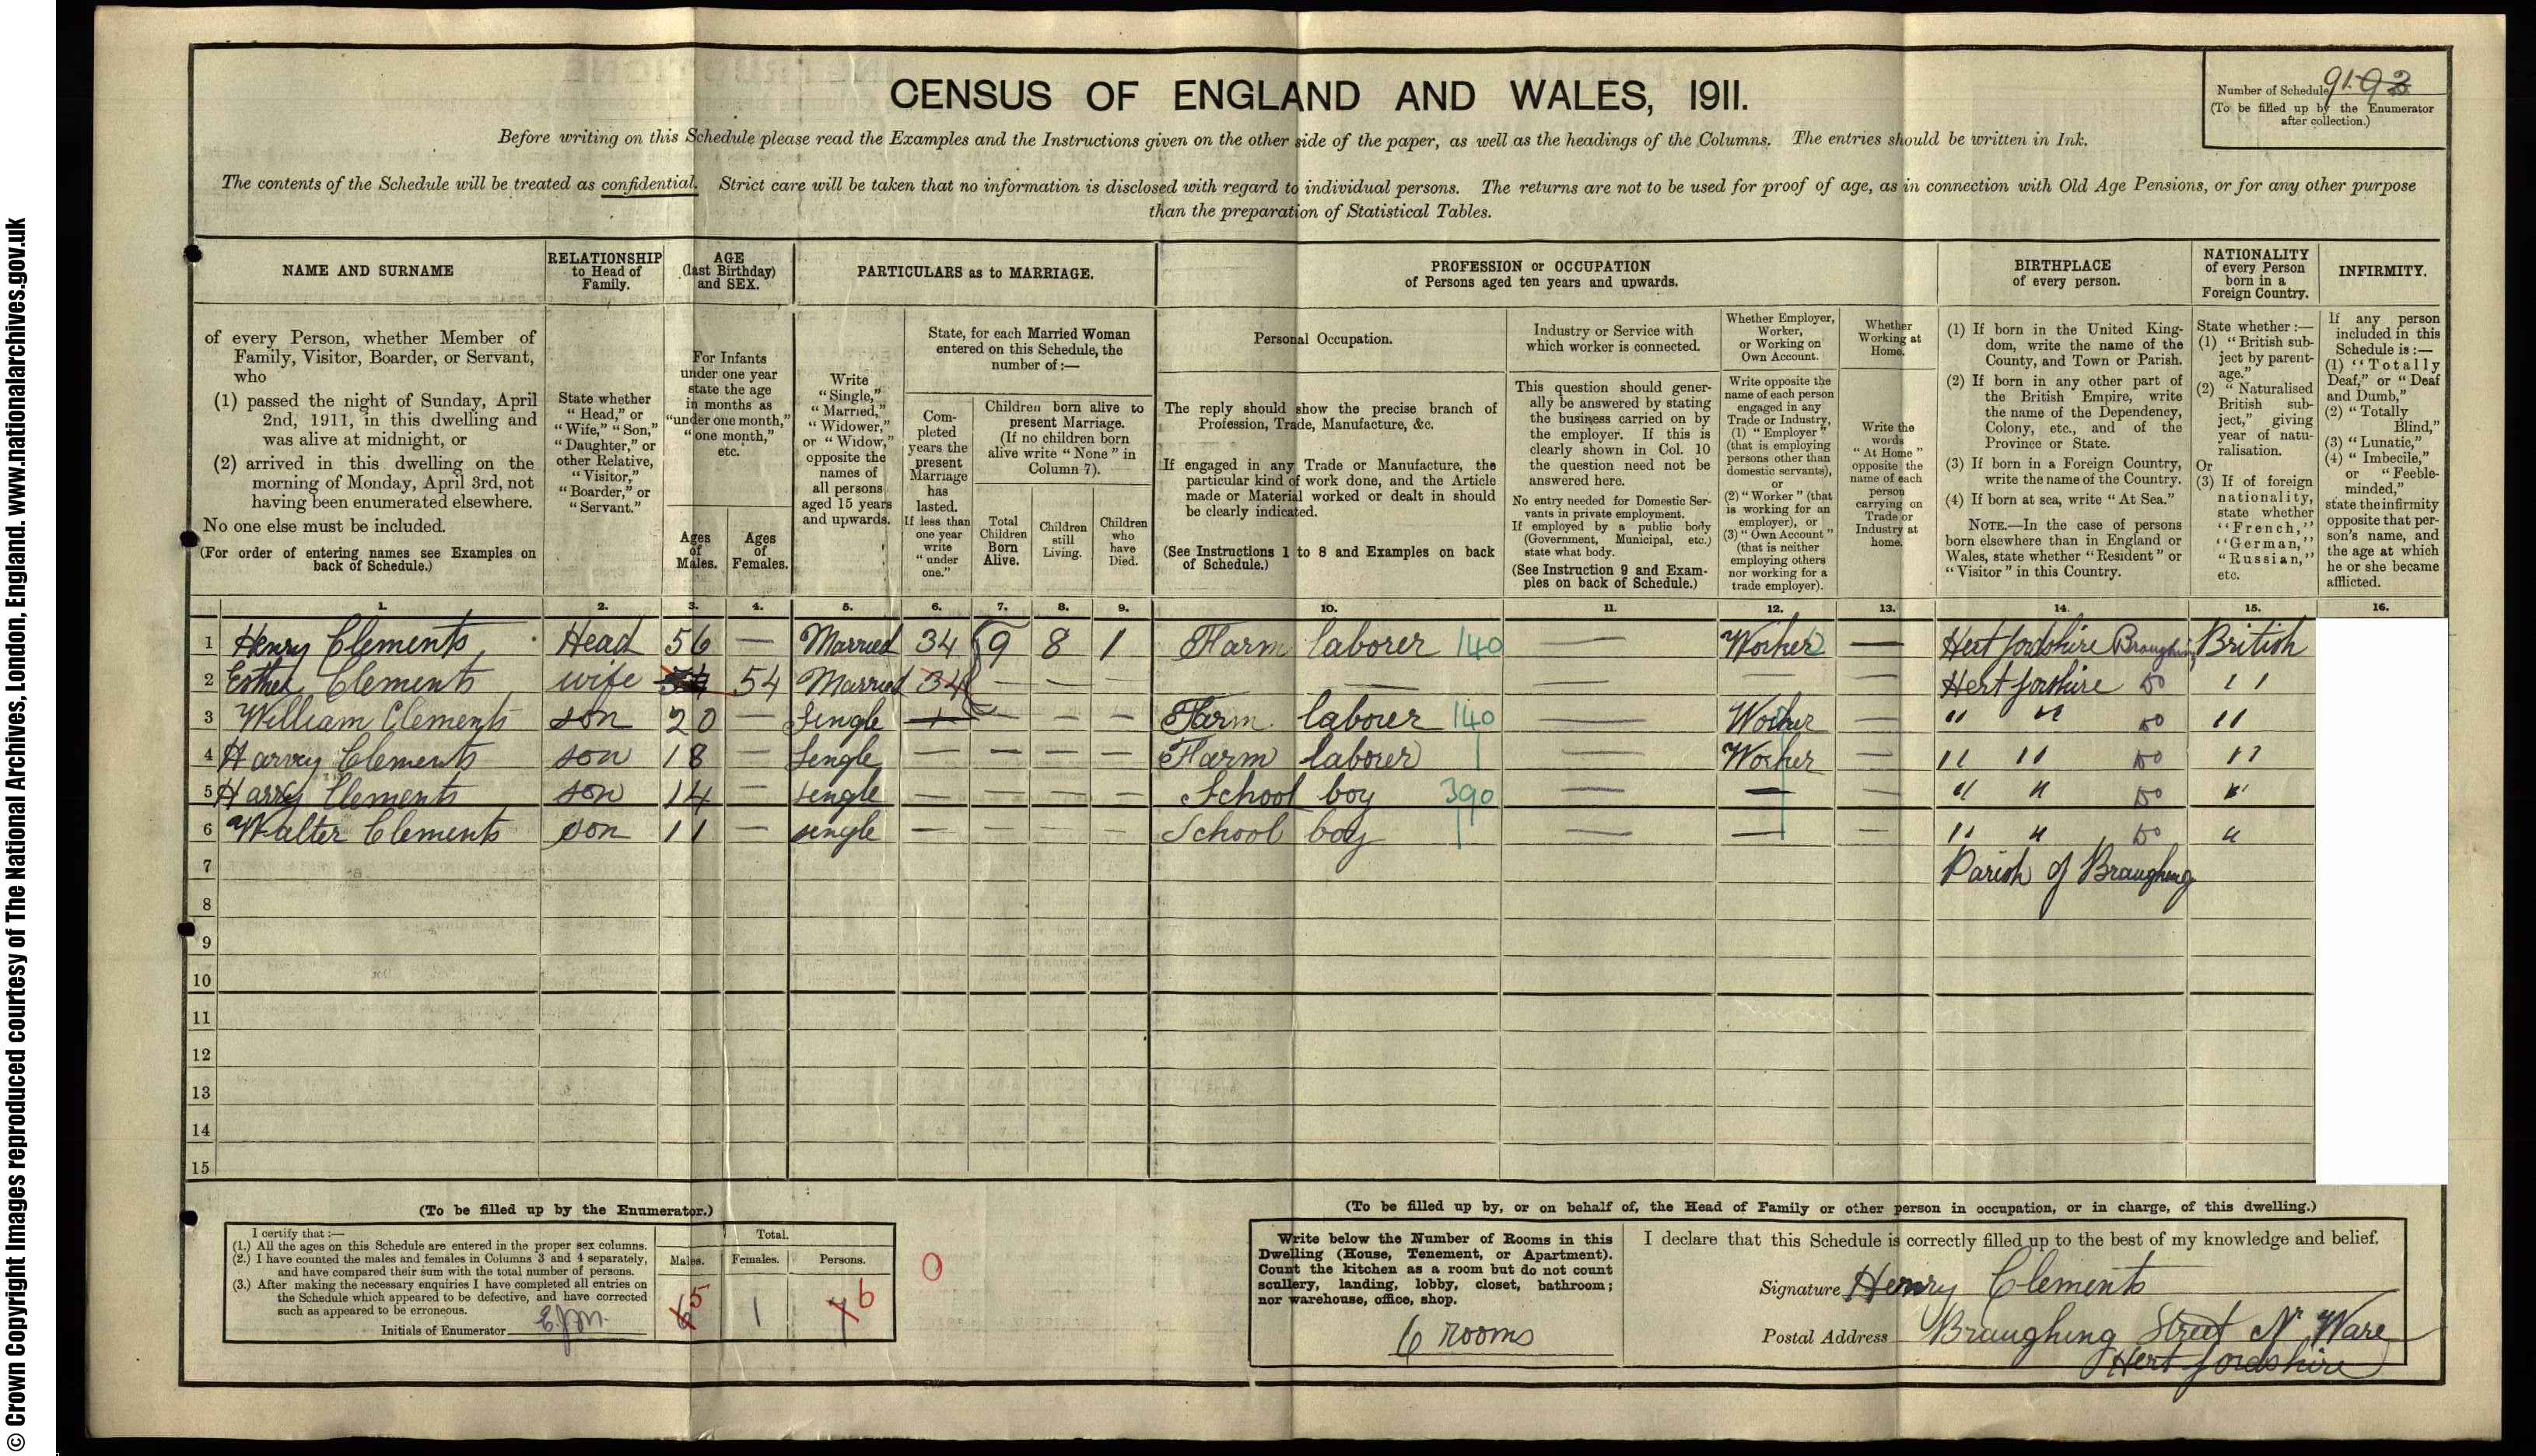 © Crown Copyright Images reproduced courtesy of The National Archives, London, England. www.nationalarchives.gov.uk
CENSUS OF ENGLAND AND WALES, 1911.
Number of Schedule 91 93
(To be filled up by the Enumerator
after collection.)
Before writing on this Schedule please read the Examples and the Instructions given on the other side of the paper, as well as the headings of the Columns. The entries should be written in Ink.
The contents of the Schedule will be treated as confidential. Strict care will be taken that no information is disclosed with regard to individual persons. The returns are not to be used for proof of age, as in connection with Old Age Pensions, or for any other purpose
than the preparation of Statistical Tables.
NAME AND SURNAME
of every Person, whether Member of
Family, Visitor, Boarder, or Servant,
who
(1) passed the night of Sunday, April
2nd, 1911, in this dwelling and
was alive at midnight, or
(2) arrived in this dwelling on the
morning of Monday, April 3rd, not
having been enumerated elsewhere.
No one else must be included.
(For order of entering names see Examples on
back of Schedule.)
RELATIONSHIP
to Head of
Family.
State whether
"Head," or
"Wife," "Son,"
"Daughter," or
other Relative,
"Visitor,"
"Boarder," or
"Servant."
AGE
(last Birthday)
and SEX.
For Infants
under one year
state the age
in months as
"under one month,"
"one month,"
etc.
Ages
of
Males.
Ages
of
Females.
PARTICULARS as to MARRIAGE.
Write
"Single,"
"Married,"
"Widower,"
or "Widow,"
opposite the
names of
all persons
aged 15 years
and upwards.
State, for each Married Woman
entered on this Schedule, the
number of:—
Com-
pleted
years the
present
Marriage
has
lasted.
If less than
one year
write
"under
one."
Children born alive to
present Marriage.
(If no children born
alive write "None" in
Column 7).
Total
Children
Born
Alive.
Children
still
Living.
Children
who
have
Died.
PROFESSION or OCCUPATION
of Persons aged ten years and upwards.
Personal Occupation.
The reply should show the precise branch of
Profession, Trade, Manufacture, &c.
If engaged in any Trade or Manufacture, the
particular kind of work done, and the Article
made or Material worked or dealt in should
be clearly indicated.
(See Instructions 1 to 8 and Examples on back
of Schedule.)
Industry or Service with
which worker is connected.
This question should gener-
ally be answered by stating
the business carried on by
the employer. If this is
clearly shown in Col. 10
the question need not be
answered here.
No entry needed for Domestic Ser-
vants in private employment.
If employed by a public body
(Government, Municipal, etc.)
state what body.
(See Instruction 9 and Exam-
ples on back of Schedule.)
Whether Employer,
Worker,
or Working on
Own Account.
Write opposite the
name of each person
engaged in any
Trade or Industry,
(1) "Employer"
(that is employing
persons other than
domestic servants),
or
(2) "Worker" (that
is working for an
employer), or
(3) "Own Account"
(that is neither
employing others
nor working for a
trade employer).
Whether
Working at
Home.
Write the
words
"At Home"
opposite the
name of each
person
carrying on
Trade or
Industry at
home.
BIRTHPLACE
of every person.
(1) If born in the United King-
dom, write the name of the
County, and Town or Parish.
(2) If born in any other part of
the British Empire, write
the name of the Dependency,
Colony, etc., and of the
Province or State.
(3) If born in a Foreign Country,
write the name of the Country.
(4) If born at sea, write "At Sea."
NOTE.—In the case of persons
born elsewhere than in England or
Wales, state whether "Resident" or
"Visitor" in this Country.
NATIONALITY
of every Person
born in a
Foreign Country.
State whether:—
(1) "British sub-
ject by parent-
age."
(2) "Naturalised
British sub-
ject," giving
year of natu-
ralisation.
Or
(3) If of foreign
nationality,
state whether
"French,"
"German,"
"Russian,"
etc.
INFIRMITY.
If any person
included in this
Schedule is:—
(1) "Totally
Deaf," or "Deaf
and Dumb,"
(2) "Totally
Blind,"
(3) "Lunatic,"
(4) "Imbecile,"
or "Feeble-
minded,"
state the infirmity
opposite that per-
son's name, and
the age at which
he or she became
afflicted.
1. 2. 3. 4. 5. 6. 7. 8. 9. 10. 11. 12. 13. 14. 15. 16.
1 Henry Clements Head 56 — Married 34 9 8 1 Farm laborer 140 — Worker — Hertfordshire Braughing British
2 Esther Clements wife 54 Married 34 — — — — — Hertforshire Do " "
3 William Clements son 20 — Single — — — Farm laborer 140 — Worker — " " Do "
4 Harvey Clements son 18 — Single — — — — Farm laborer — Worker — " " Do "
5 Harry Clements son 14 — single — — — — School boy 390 — — — " " Do "
6 Walter Clements son 11 — single — — — — School boy — — — " " Do "
7 Parish of Braughing
8
9
10
11
12
13
14
15
(To be filled up by the Enumerator.)
I certify that:—
(1.) All the ages on this Schedule are entered in the proper sex columns.
(2.) I have counted the males and females in Columns 3 and 4 separately,
and have compared their sum with the total number of persons.
(3.) After making the necessary enquiries I have completed all entries on
the Schedule which appeared to be defective, and have corrected
such as appeared to be erroneous.
Initials of Enumerator
Total.
Males. Females. Persons.
6 5 1 7 6
0
(To be filled up by, or on behalf of, the Head of Family or other person in occupation, or in charge, of this dwelling.)
Write below the Number of Rooms in this
Dwelling (House, Tenement, or Apartment).
Count the kitchen as a room but do not count
scullery, landing, lobby, closet, bathroom;
nor warehouse, office, shop.
6 rooms
I declare that this Schedule is correctly filled up to the best of my knowledge and belief.
Signature Henry Clements
Postal Address Braughing Street Nr Ware
Hertfordshire